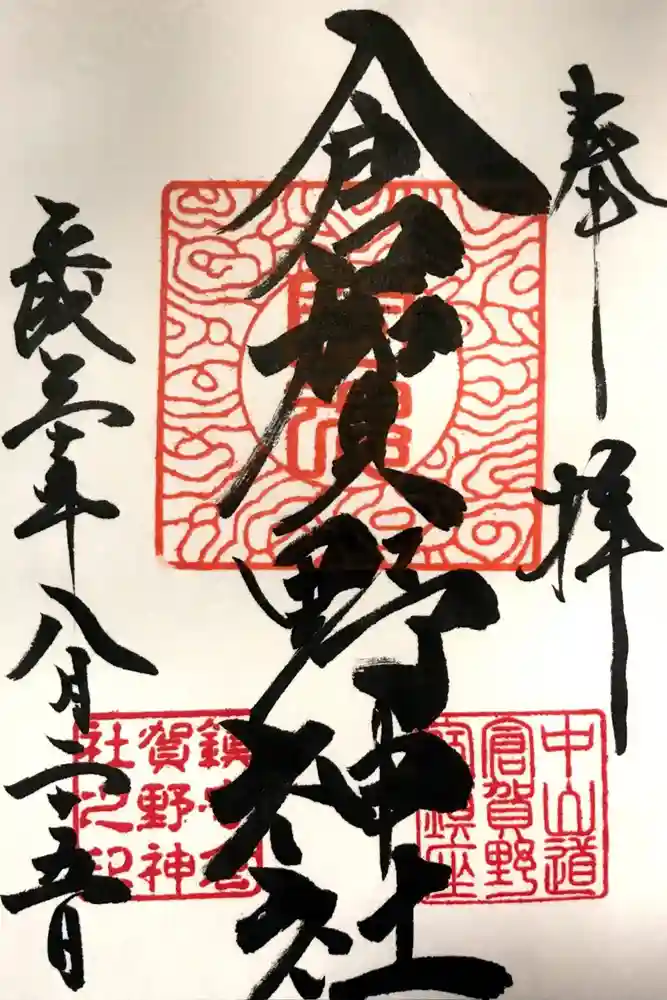 奉拝
倉賀野神社
平成三十年八月二十五日
中山道
倉賀野
宿鎮座
賀野神
社之印